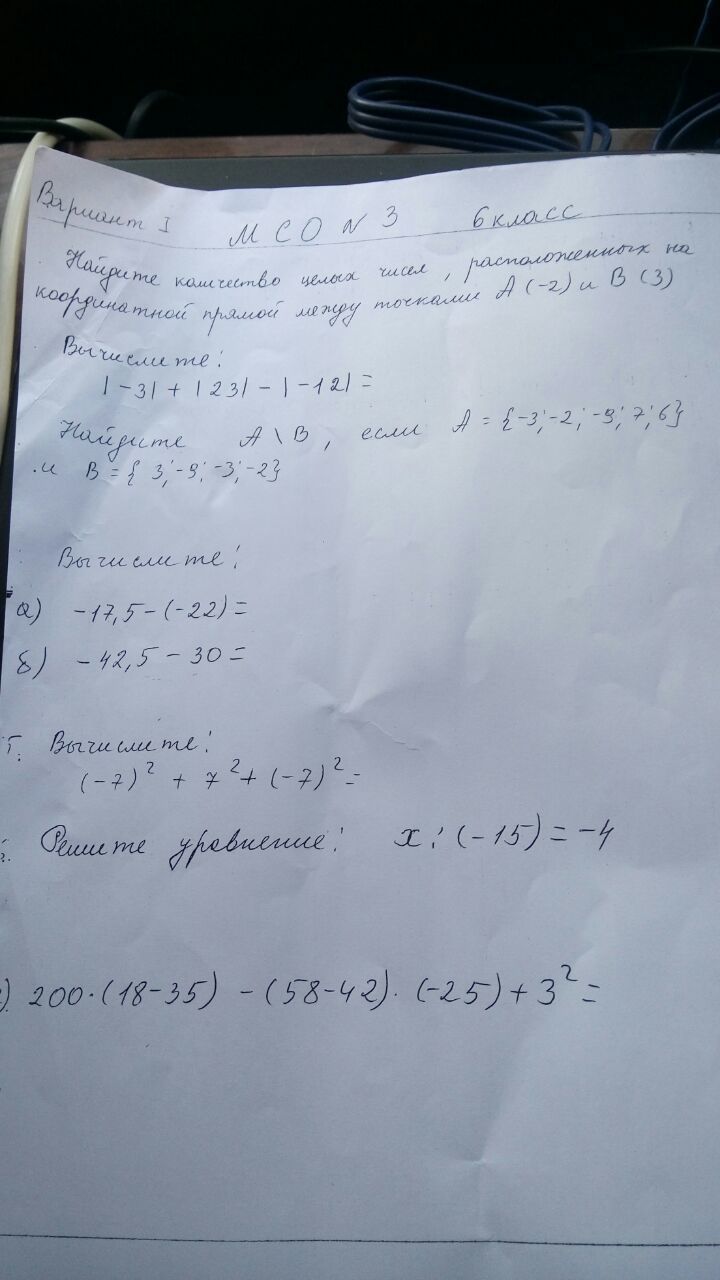 Вариант I МСО N 3 6 класс
Найдите количество целых чисел, расположенных на
координатной прямой между точками А (-2) и В (3)
Вычислите:
|-3| + |23| - |-12| =
Найдите А \ В, если А = {-3; -2; -9; 7; 6}
и В = { 3; -9; -3; -2}
Вычислите:
а) -17,5 - (-22) =
б) -42,5 - 30 =
Вычислите:
(-7)² + 7² + (-7)² =
Решите уравнение: x : (-15) = -4
200·(18-35) - (58-42)·(-25) + 3² =